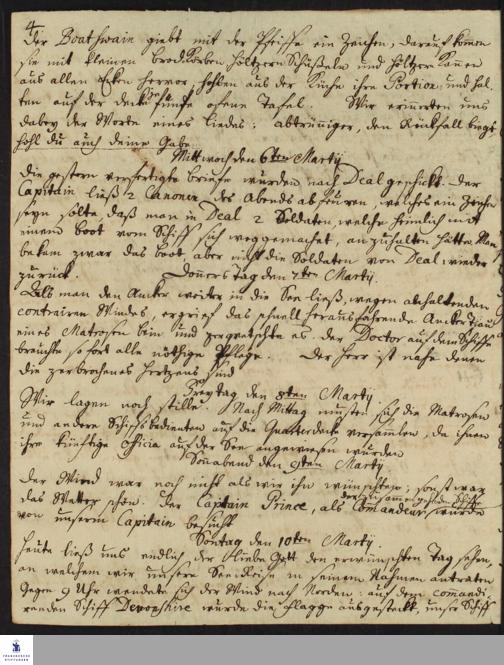 4
Der Boathswain giebt mit der Pfeiffe ein Zeichen, darauf komen
sie mit kleinen brodtkörben höltzern Schüßeln und höltzern Kannen
aus allen Ecken hervor, hohlen aus der Küche ihre Portion, und hal-
ten auf der decke offene Tafel. Wir erinerten uns
dabey der Worte eines liedes: abtrünniger, den Rückfall
hohl du auch deine Gabe.
Mittwoch den 6ten Martij
die gestern verfertigte briefe wurden nach Deal geschickt. Der
Capitain ließ 2 Canonen des Abends abfeuren, welches ein Zeichen
seyn solte, daß man in Deal 2 Soldaten, welche heimlich mit
einem boot vom Schiff sich weggemachet, anzuhalten hätte. Man
bekam zwar das boot, aber nicht die Soldaten von Deal wieder
zurück. Donnerstag den 7ten Martij.
Als man den Ancker weiter in die See ließ, wegen anhaltenden
contrairen Windes, ergrief das schnell herausfahrende Ancker Tau
eines Matrosen bein und zerquetschte es. der Doctor auf dem Schiffe
brauchte sofort alle nöthige Pflege. Der Herr ist nahe denen
die zerbrochenes Hertzens sind
Freytag den 8ten Martij
Wir lagen noch stille. Nach Mittag musten sich die Matrosen
und andere Schiffsbedienten auf die Quarterdeck versamlen, da ihnen
ihre künftige officia auf der See angewiesen wurden
Sonabend den 9ten Martij.
der Wind war noch nicht als wir ihn wünschten; sonst war
das Wetter schön. Der Captain Prince, als Comandeur wurde
der zusammengehenden Schiffe
von unserm Capitain besucht
Sontag den 10ten Martij.
Heute ließ uns endlich der liebe Gott den erwünschten Tag sehen,
an welchem wir unsere SeeReise in seinem Nahmen antraten
Gegen 9 Uhr wendete sich der Wind nach Norden: auf dem comandi-
renden Schiff Devonshire wurde die Flagge ausgesteckt, unser Schiff
FRANCKESCHE
STIFTUNGEN